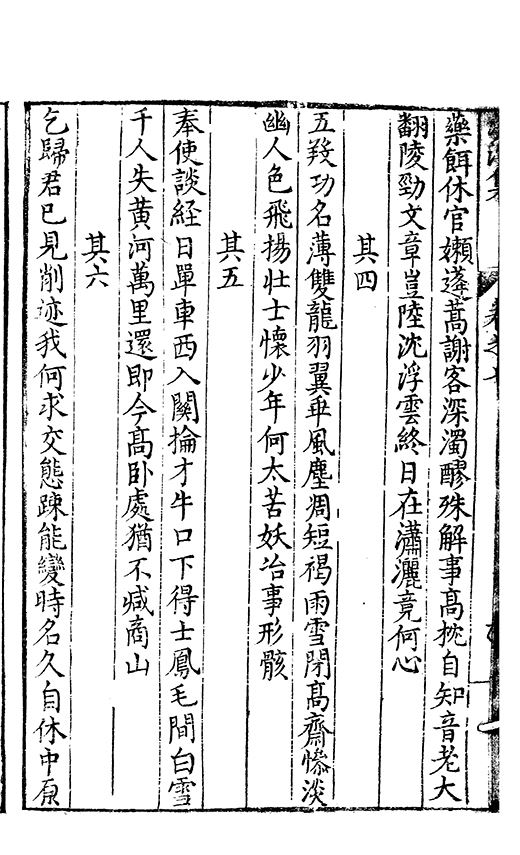 藥餌休官嬾蓬蒿謝客深濁醪殊解事高枕自知音老大
翻陵勁文章豈陸沈浮雲終日在瀟灑竟何心
其四
五羖功名薄雙龍羽翼乖風塵凋短褐雨雪閉高齋慘淡
幽人色飛揚壯士懷少年何太苦妖冶事形骸
其五
奉使談經日單車西入關掄才牛口下得士鳳毛間白雪
千人失黃河萬里還即今高卧處猶不減商山
其六
乞歸君已見削迹我何求交態踈能變時名久自休中原